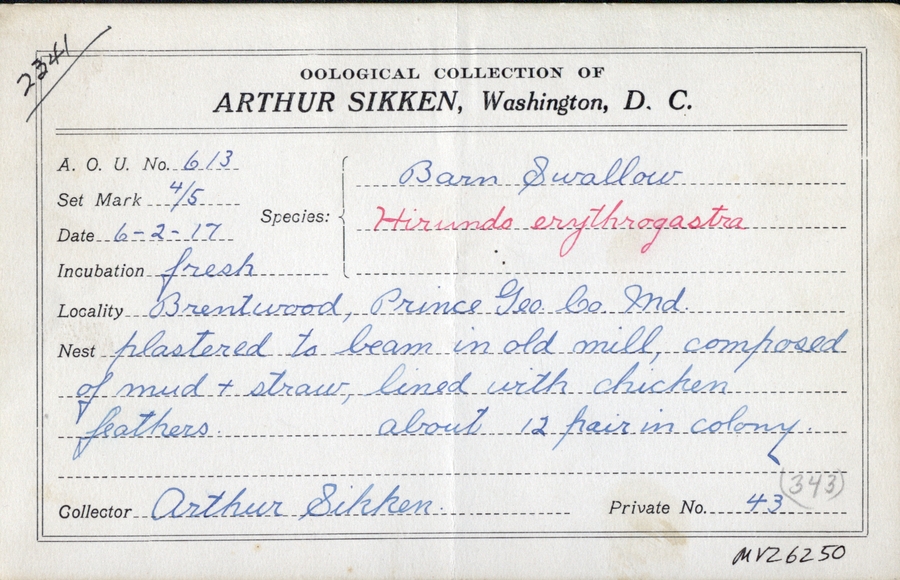 2341
OOLOGICAL COLLECTION OF
ARTHUR SIKKEN, Washington, D. C.
A. O. U. No. 613
Set Mark 4/5
Date 6-2-17
Incubation fresh
Species: Barn Swallow
Hirundo erythrogastra
Locality Brentwood, Prince Geo. Co. Md.
Nest plastered to beam in old mill, composed
of mud + straw, lined with chicken
feathers. about 12 pair in colony.
(343)
Collector Arthur Sikken. Private No. 43
MVZ6250